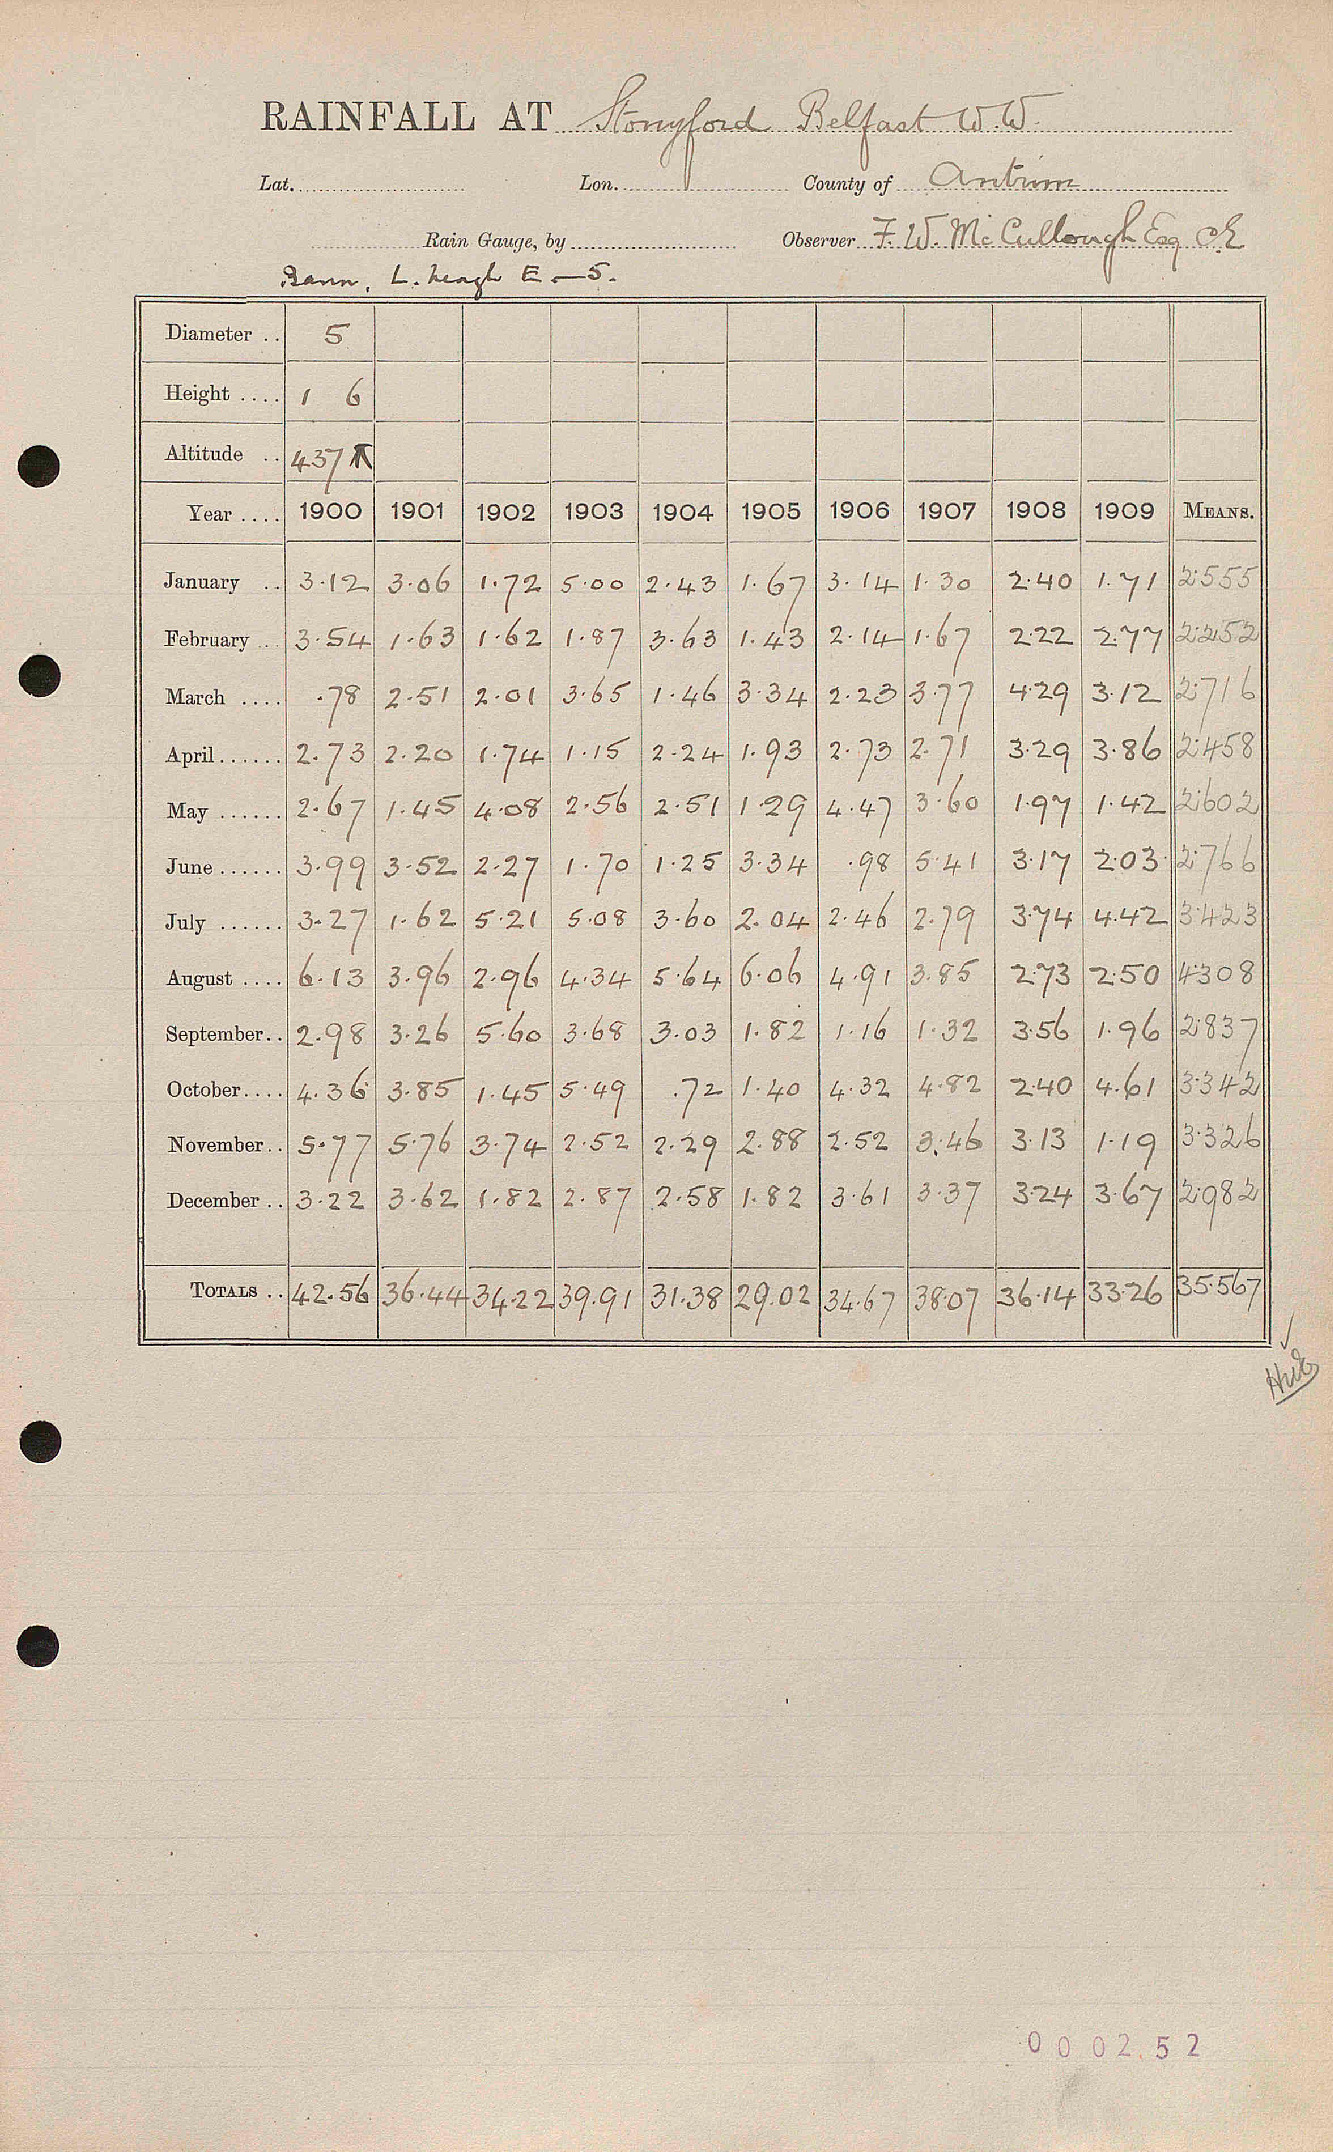 RAINFALL AT Stonyford Belfast W.W.
Lat. Lon. County of Antrim
Rain Gauge, by Observer F. W. McCullough Esq CE
Bann, L. Neagh E. — 5.
Diameter .. 5
Height .... 1 6
Altitude .. 437
Year .... 1900 1901 1902 1903 1904 1905 1906 1907 1908 1909 MEANS.
January .. 3.12 3.06 1.72 5.00 2.43 1.67 3.14 1.30 2.40 1.71 2.555
February .. 3.54 1.63 1.62 1.87 3.63 1.43 2.14 1.67 2.22 2.77 2.252
March .... .78 2.51 2.01 3.65 1.46 3.34 2.23 3.77 4.29 3.12 2.716
April...... 2.73 2.20 1.74 1.15 2.24 1.93 2.73 2.71 3.29 3.86 2.458
May ...... 2.67 1.45 4.08 2.56 2.51 1.29 4.47 3.60 1.97 1.42 2.602
June...... 3.99 3.52 2.27 1.70 1.25 3.34 .98 5.41 3.17 2.03 2.766
July ...... 3.27 1.62 5.21 5.08 3.60 2.04 2.46 2.79 3.74 4.42 3.423
August .... 6.13 3.96 2.96 4.34 5.64 6.06 4.91 3.85 2.73 2.50 4.308
September.. 2.98 3.26 5.60 3.68 3.03 1.82 1.16 1.32 3.56 1.96 2.837
October.... 4.36 3.85 1.45 5.49 .72 1.40 4.32 4.82 2.40 4.61 3.342
November.. 5.77 5.76 3.74 2.52 2.29 2.88 2.52 3.46 3.13 1.19 3.326
December .. 3.22 3.62 1.82 2.87 2.58 1.82 3.61 3.37 3.24 3.67 2.982
TOTALS .. 42.56 36.44 34.22 39.91 31.38 29.02 34.67 38.07 36.14 33.26 35.567
000252